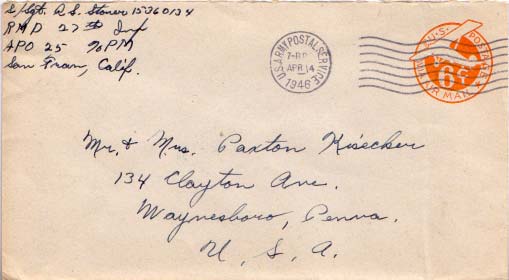 S/Sgt. R.S. Stoner 15360134
RMD 27th Inf
APO 25 % PM
San Fran, Calif.
U.S. ARMY POSTAL SERVICE
APR 14
1946
U.S. POSTAGE
6¢
AIR MAIL
Mr. & Mrs. Paxton Kisecker
134 Clayton Ave.
Waynesboro, Penna.
U. S. A.